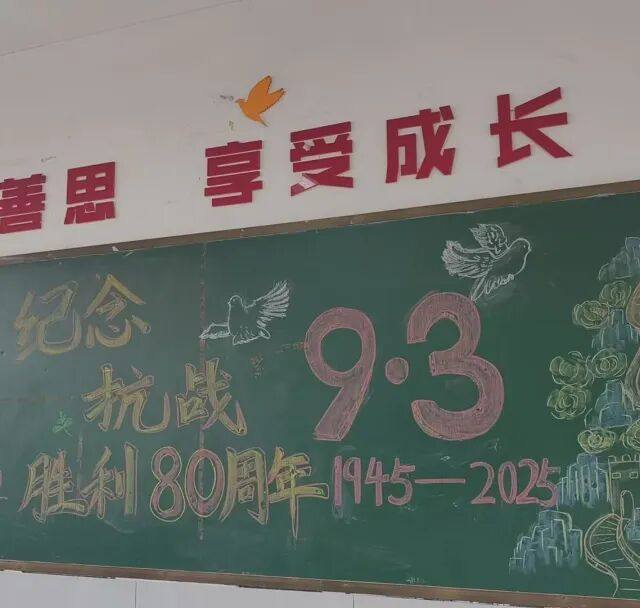 善思 享受成长
纪念
抗战
9·3
胜利80周年 1945—2025